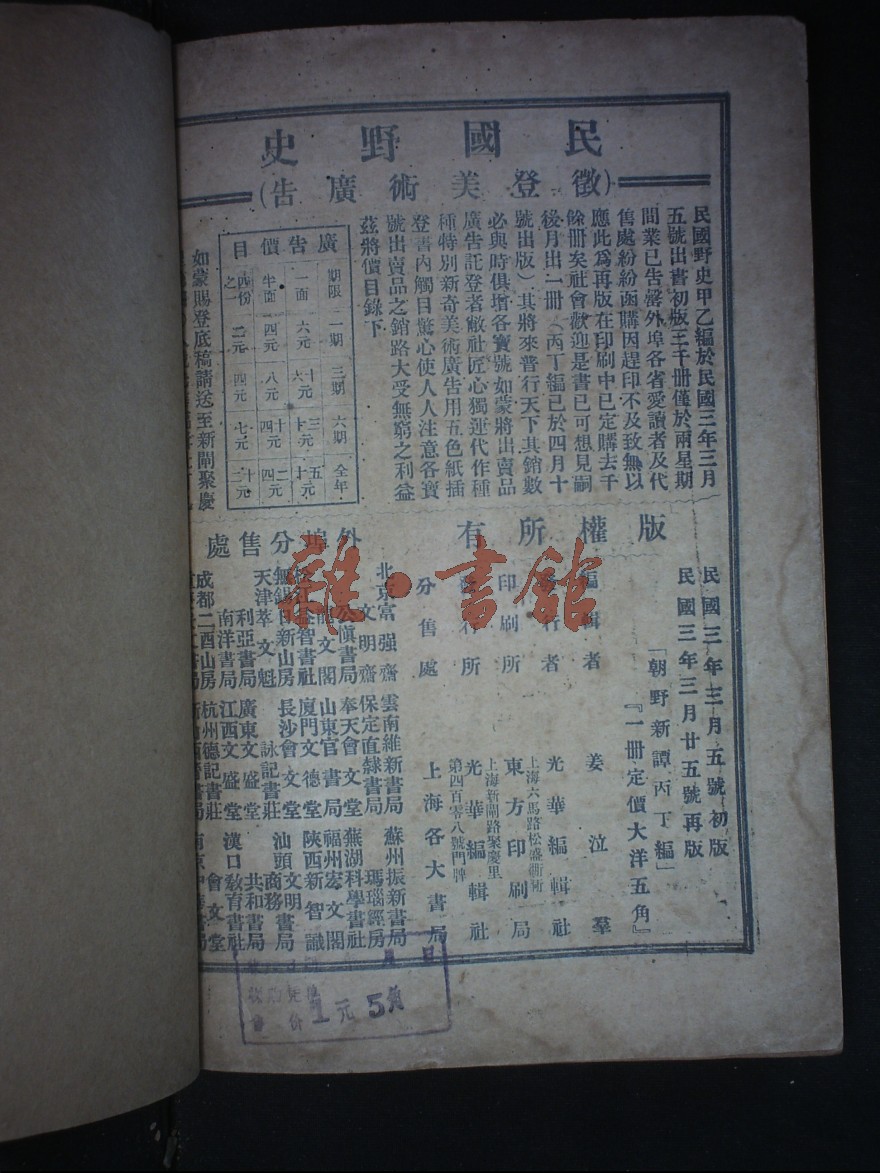 民國野史
(徵登美術廣告)
民國野史甲乙編於民國三年三月
五號出書初版三千冊僅於兩星期
間業已告罄外埠各省愛讀者及代
售處紛紛函購因趕印不及致無以
應此爲再版在印刷中已定購去千
餘冊矣社會歡迎是書已可想見嗣
後月出一冊(丙丁編已於四月十
號出版)其將來普行天下其銷數
必與時俱增各寶號如蒙將出賣品
廣告託登者敝社匠心獨運代作種
種特別新奇美術廣告用五色紙插
登書內觸目驚心使人人注意各寶
號出賣品之銷路大受無窮之利益
茲將價目錄下
廣告價目
期限 一期 三期 六期 全年
一面 六元 十六元 三十元 五十元
半面 四元 八元 十四元 二十四元
四份之一 二元 四元 七元 十二元
如蒙賜登底稿請送至新閘聚慶
版權所有
民國三年三月五號初版
民國三年三月廿五號再版
「朝野新譚丙丁編」
『一冊定價大洋五角』
編輯者 姜泣羣
發行者 光華編輯社
上海六馬路松盛衖衖
印刷所 東方印刷局
上海新閘路聚慶里
發行所 光華編輯社
第四百零八號門牌
分售處 上海各大書局
外埠分售處
北京富強齋 雲南維新書局 蘇州振新書局
文明齋 保定直隸書局 瑪瑙經房
公愼書局 奉天會文堂 蕪湖科學書社
龍文閣 山東官書局 福州宏文閣
益智書社 廈門文德堂 陝西新智識
無錫日新山房 長沙會文堂 文明書局
天津萃文魁 詠記書莊 汕頭商務
利亞書局 廣東文盛堂 共和書局
南洋書局 江西文盛堂 漢口敎育書社
成都二酉山房 杭州德記書莊 會文堂
雜·書館
1元5角